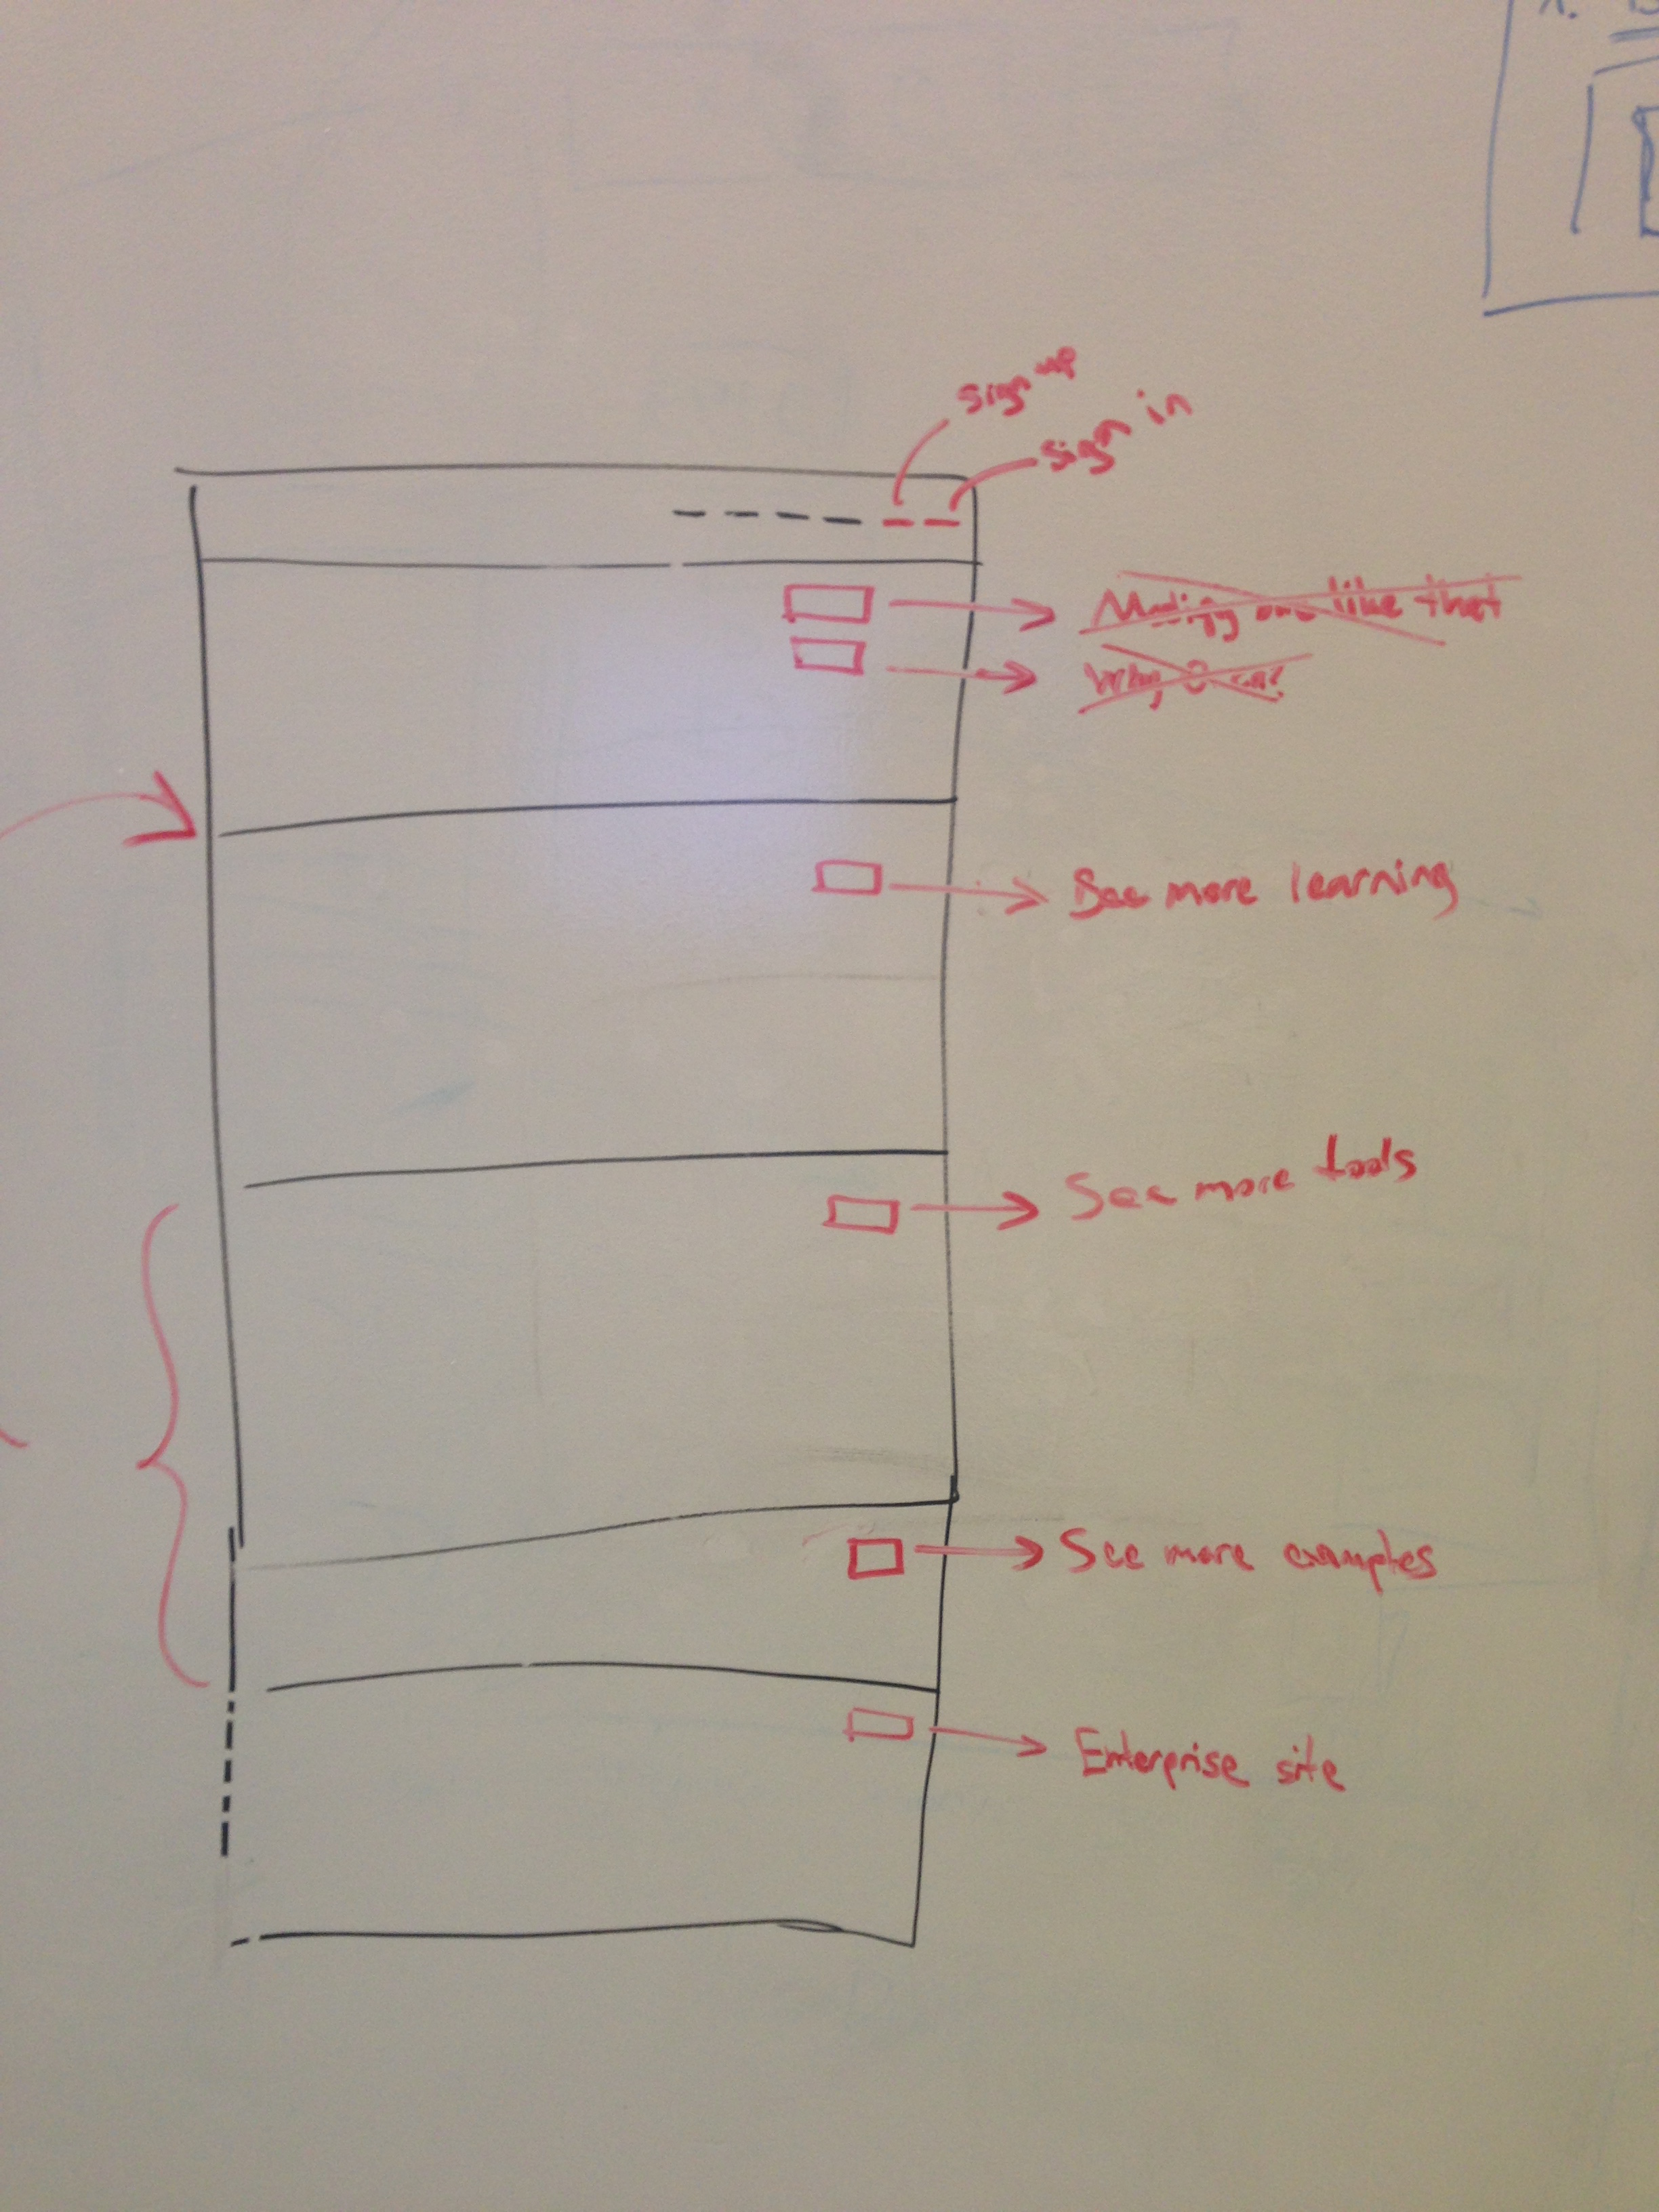 sign up
sign in
like that
Why
See more learning
See more tools
See more examples
Enterprise site